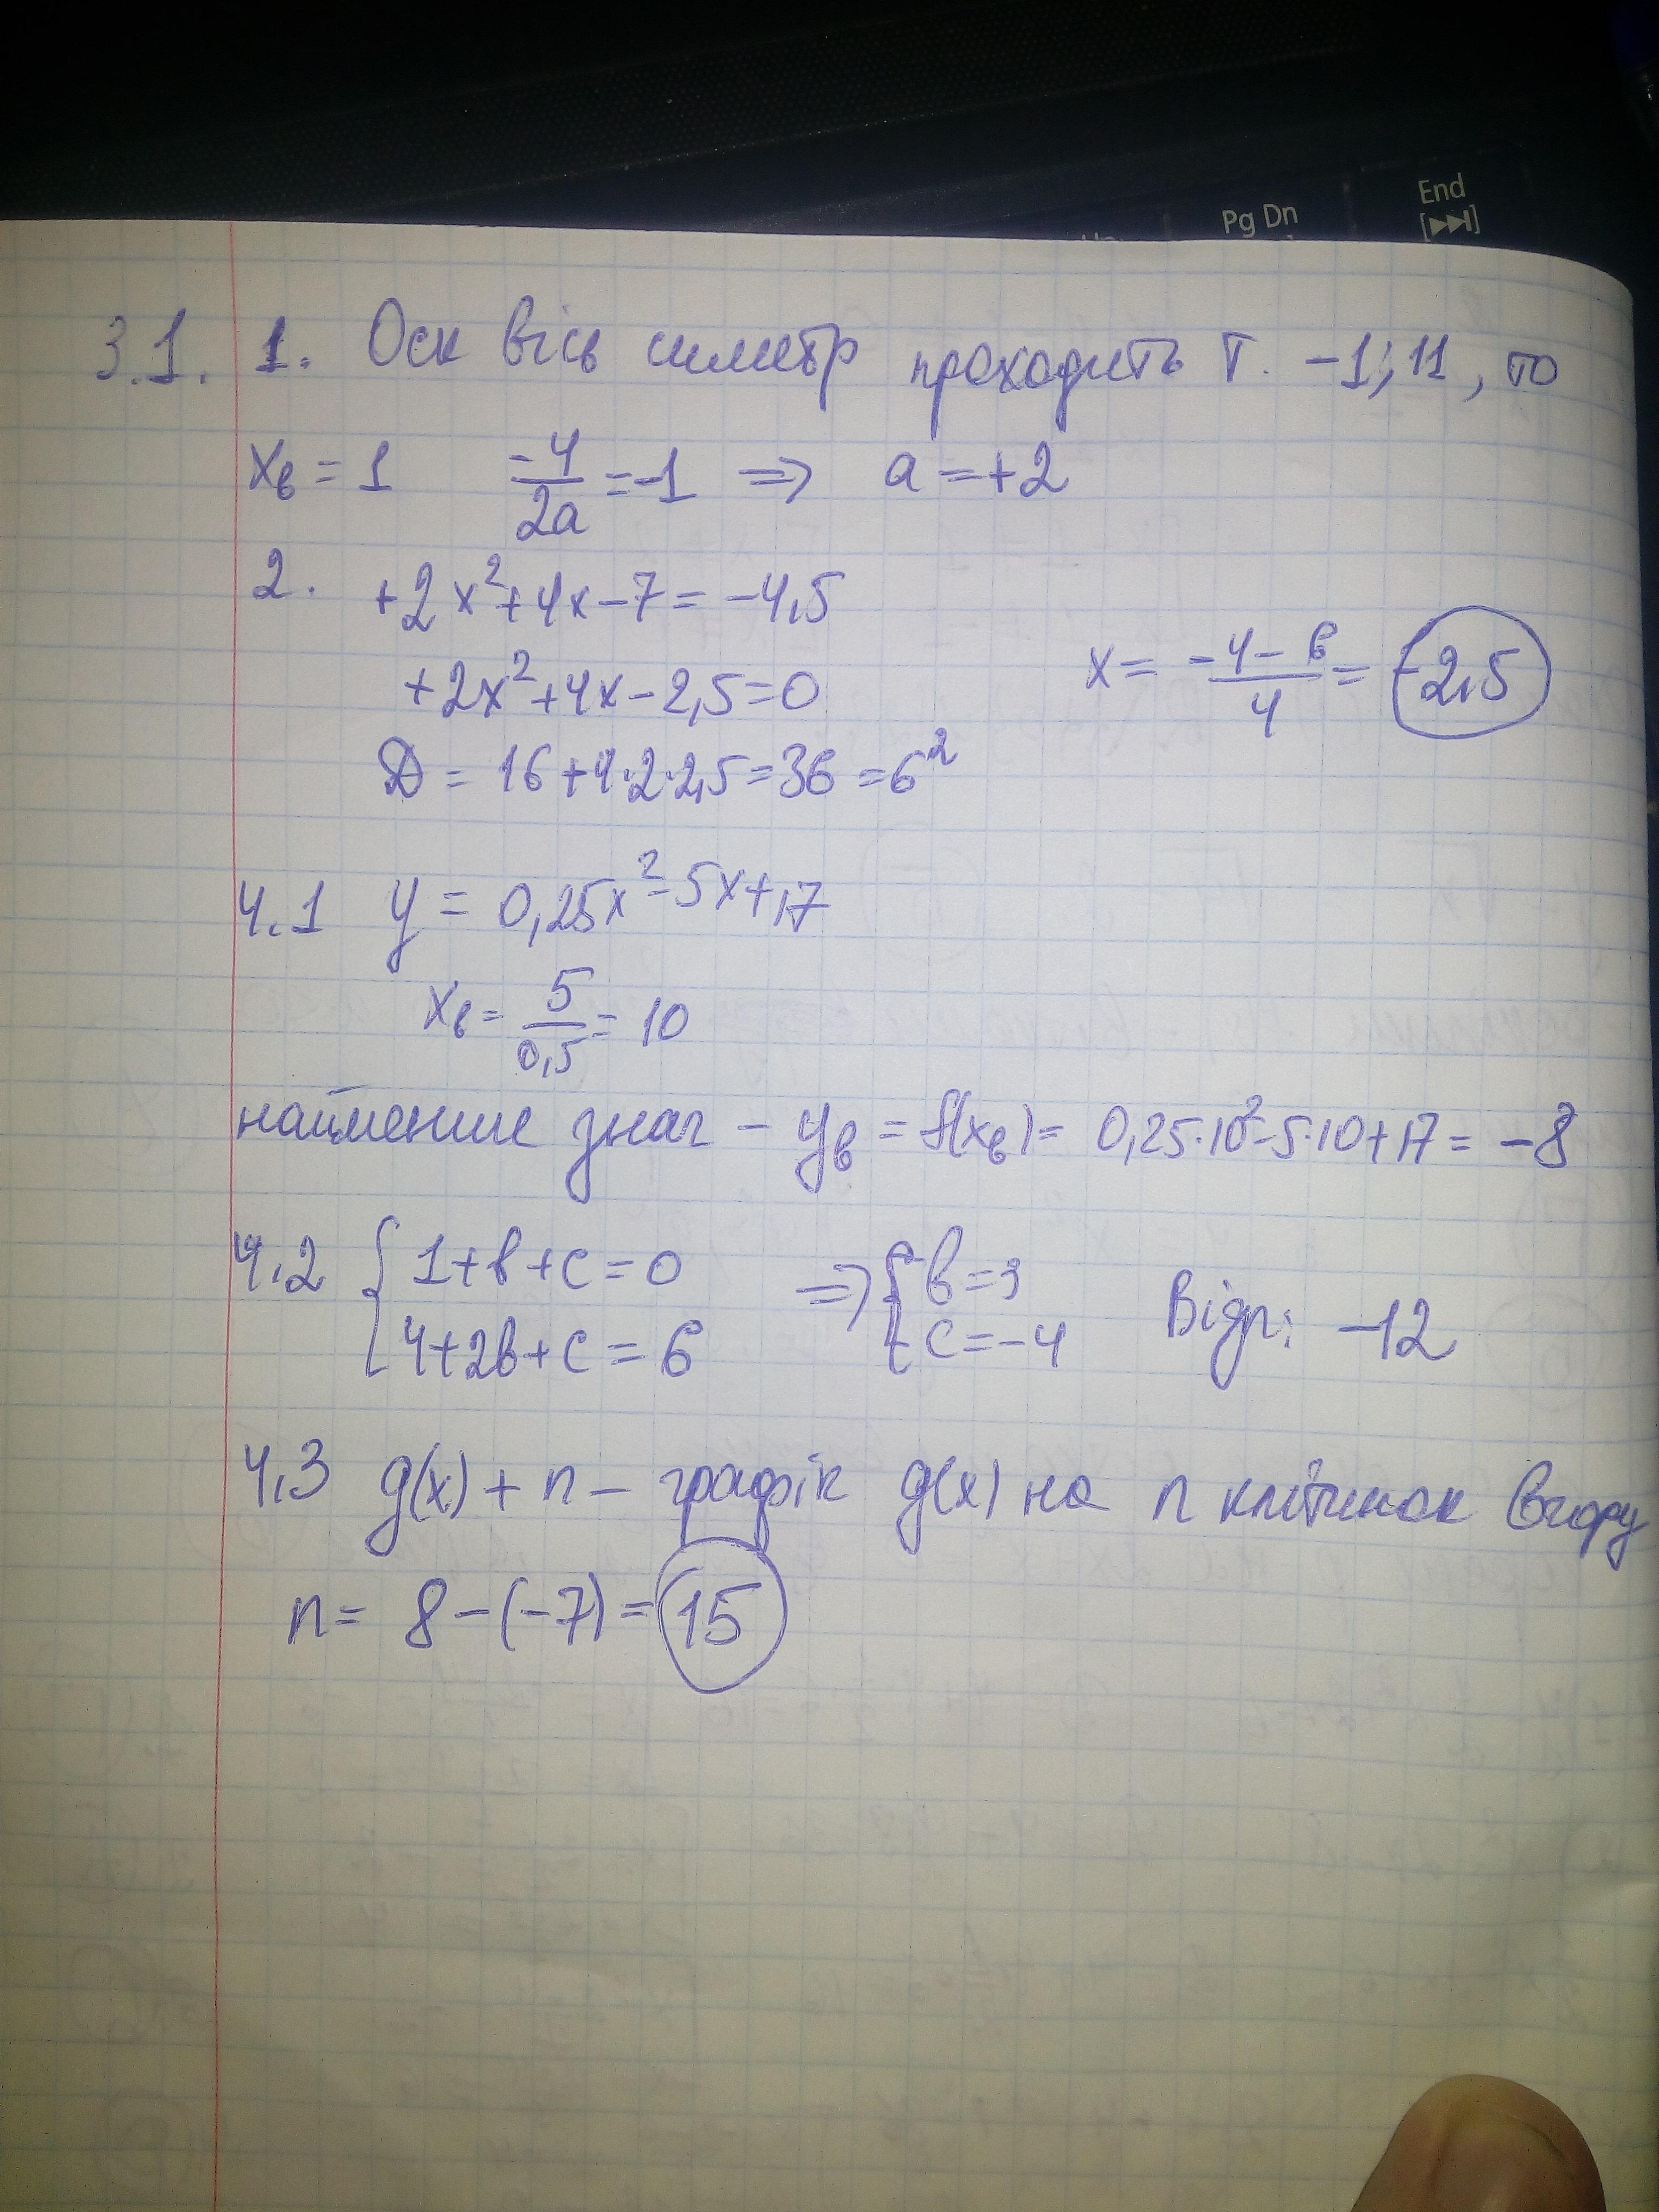 Pg Dn
End
3.1. 1. Оск вісь симетр проходить т. -1; 11, то
xв = 1 -4/2a = -1 => a = +2
2. +2x²+4x-7 = -4,5
+2x²+4x-2,5=0 x = (-4-6)/4 = -2,5
D = 16+4·2·2,5=36 =6²
4.1 y = 0,25x²-5x+17
xв = 5/0,5 = 10
найменше знач - yв = f(xв) = 0,25·10²-5·10+17 = -8
4.2 { 1+b+c=0 => { b=3 Відп: -12
4+2b+c=6 c=-4
4.3 g(x) + n - графік g(x) на n клітинок вгору
n = 8-(-7) = 15